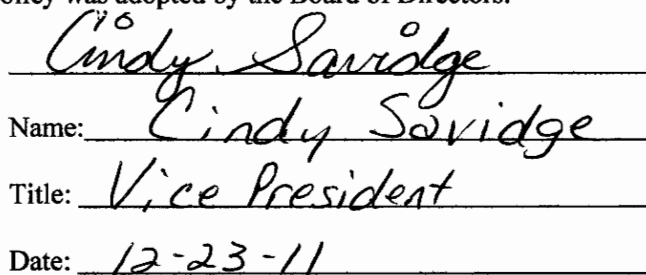 olicy was adopted by the Board of Directors.
Cindy Savidge
Name: Cindy Savidge
Title: Vice President
Date: 12-23-11